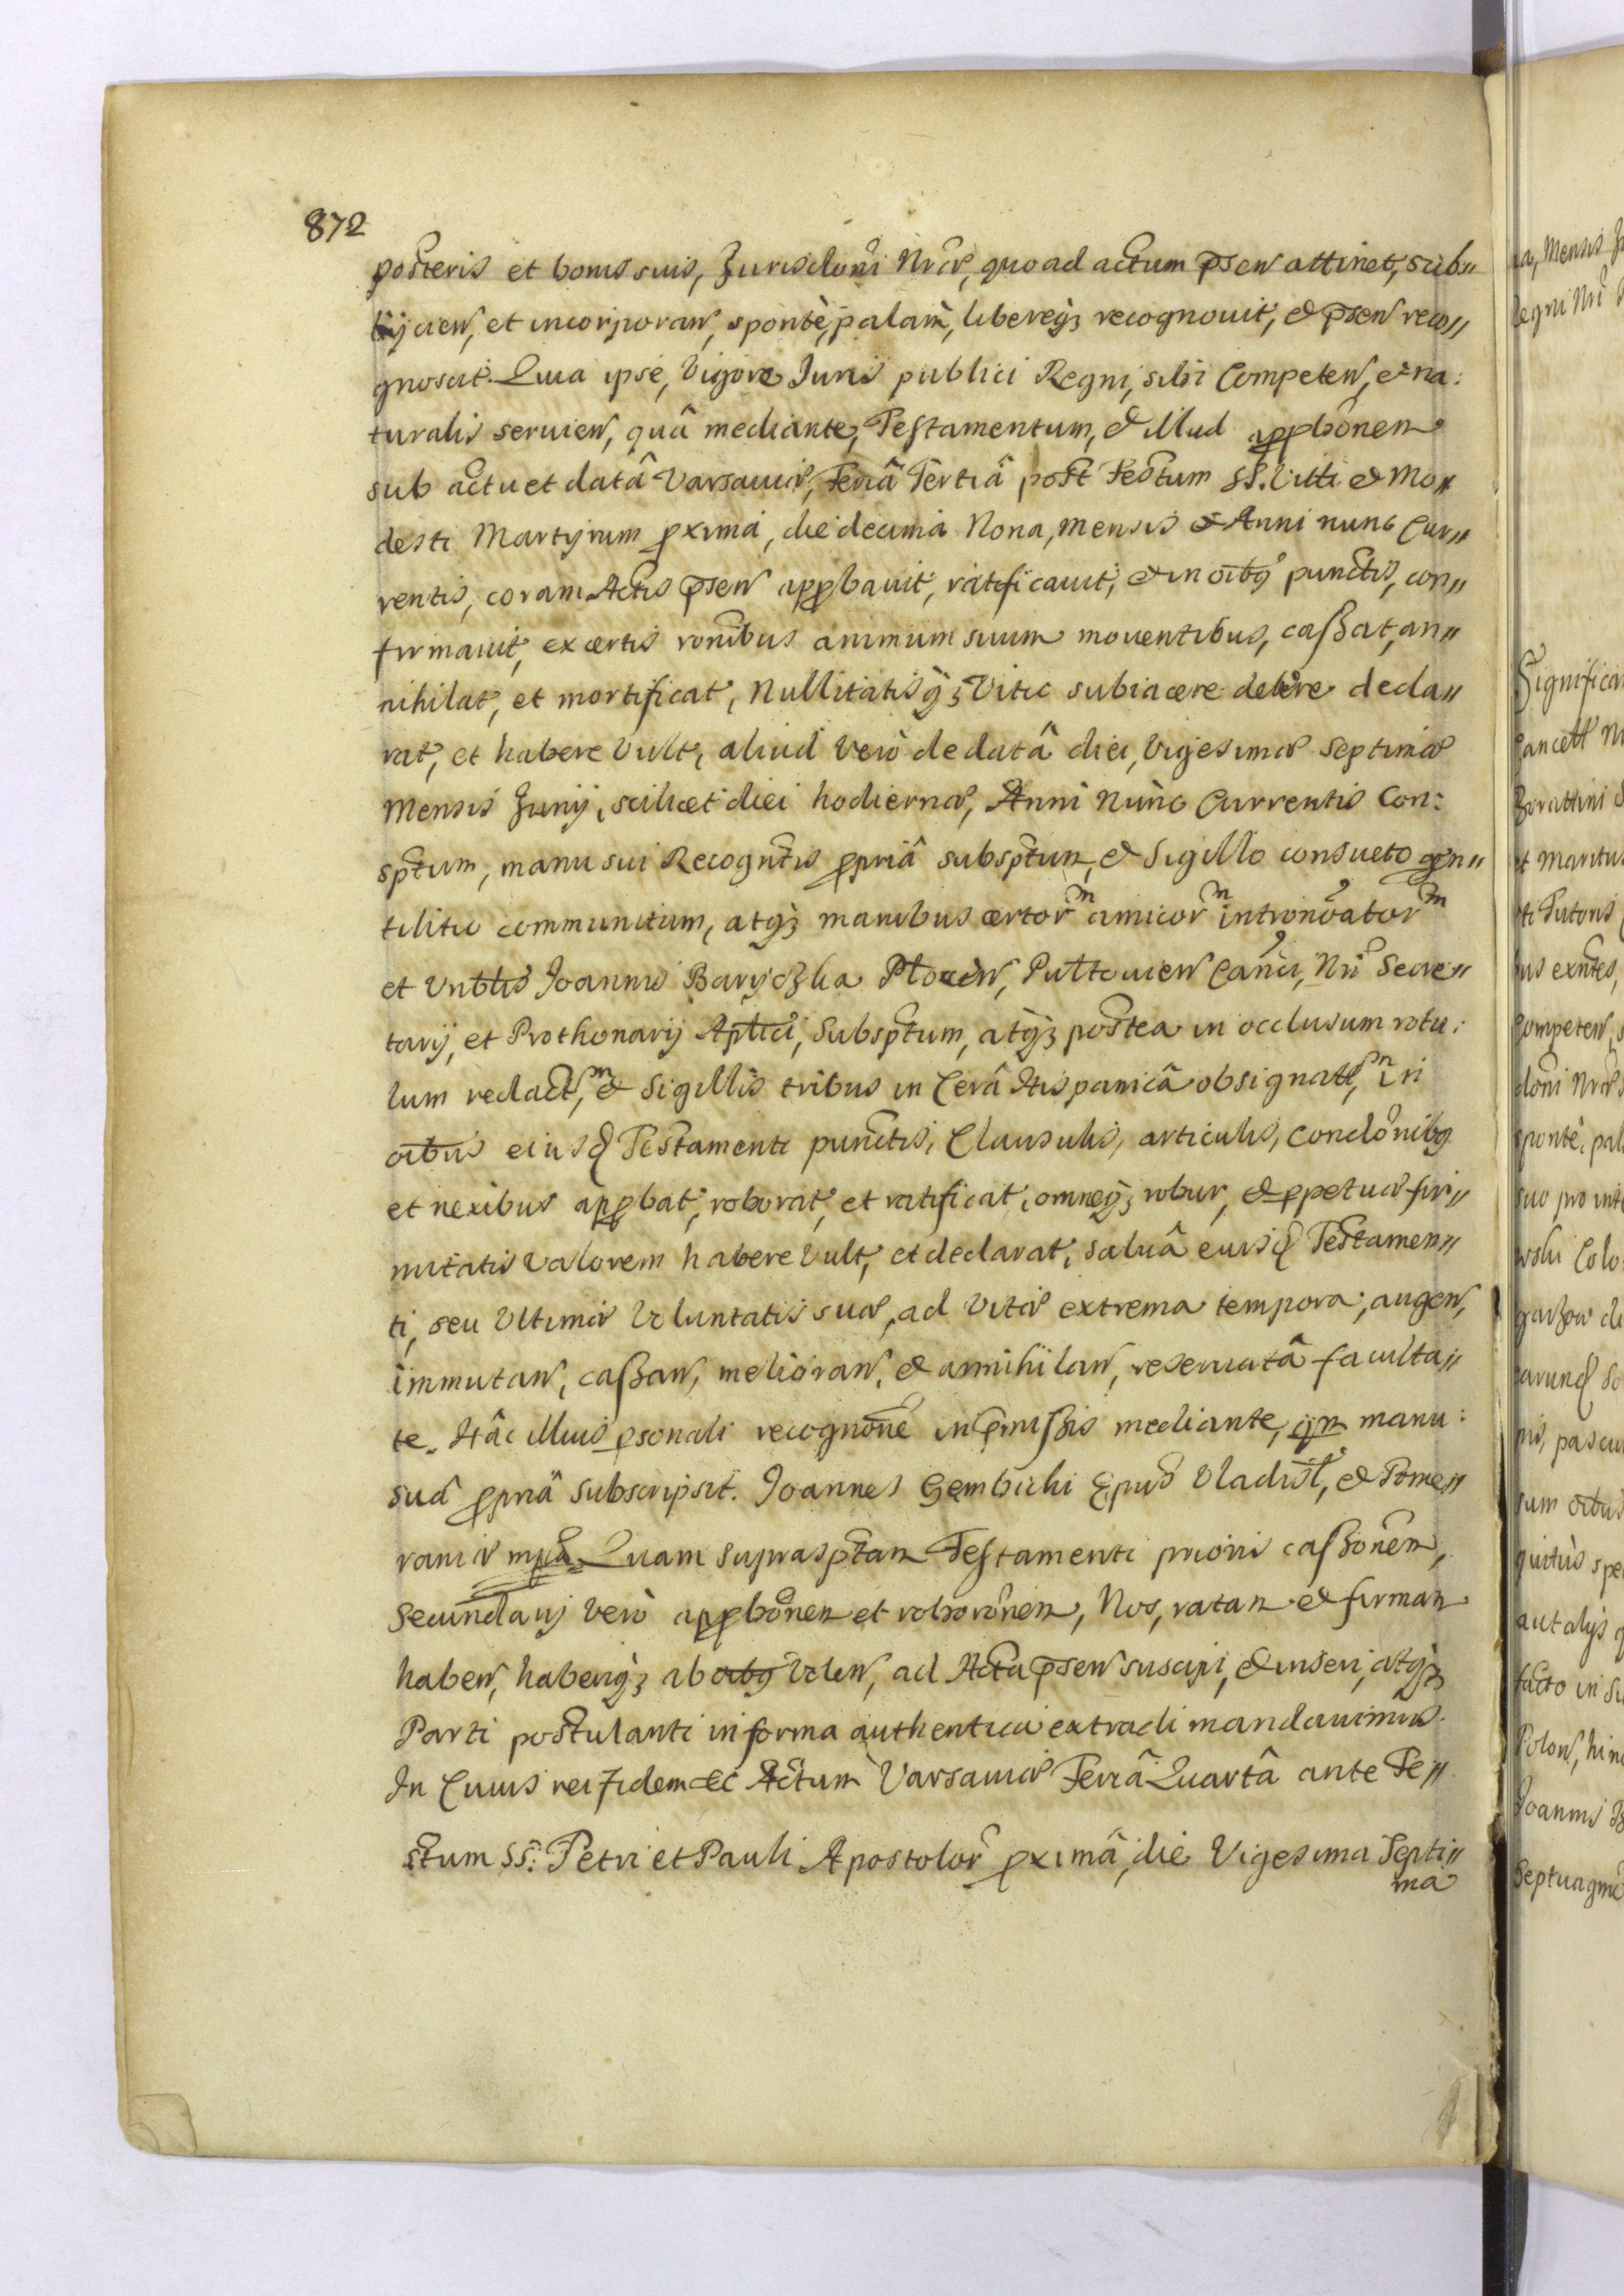 872
posteris et bonis suis, Jurisdoni Nræ, quoad actum psen attinet, sub„
ijcien, et incorporan, spontè, palàm, libereq3 recognouit, & psen reco„
gnoscit. Quia ipse, Vigore Juris publici Regni, sibi Competen, et na:
turalis seruien, quâ mediante, Testamentum, & illud appbônem
sub actu et datâ Varsauiæ, Feriâ Tertiâ post Festum SS. Viti & Mo„
desti Martyrum pximá, die decimá Nona, mensis & Anni nunc Cur„
rentis, coram Actis psen appbauit, ratificauit, & in oibq punctis, con„
firmauit, ex certis ronibus animum suum mouentibus, caßat, an„
nihilat, et mortificat, Nullitatisq3 Vitio subiacere debêre decla„
rat, et habere Vult, aliud Verò de datâ diei, Vigesimæ Septimæ
Mensis Junij, scilicet diei hodiernæ, Anni Nunc Currentis Con:
sptum, manu sui Recogntis ppriâ subsptum, & Sigillo consueto gen„
tilitio communitum, atq3 manibus certor͂m amicor͂m intronôator͂m
et Vnblis Joannis Baryczka Plocen, Pultouien Canci, Nri Secre„
tarij, et Prothonarij Aplici, Subsptum, atq3 postea in occlusum rotu:
lum redact͂m, & Sigillis tribus in Cerâ Hispanicâ obsignatt͂m, in
oibus eiusd Testamenti punctis, Clausulis, articulis, condônibq
et nexibus appbat, roborat, et ratificat, omneq3 robur, & ppetuæ fir„
mitatis Valorem habere Vult, et declarat, saluâ eiusd Testamen„
ti, seu Vltimæ Voluntatis suæ, ad Vitæ extrema tempora, augen,
immutan, caßan, melioran, & annihilan, reseruatâ faculta„
te. Hâc illius psonali recognône in pmißis mediante, qm manu:
suâ ppriâ Subscripsit. Joannes Gembicki Epus Vladisl, & Pome„
raniæ mpa. Quam suprasptam Testamenti prioris caßonem,
Secundarij verò appbônem et roborônem, Nos, ratam & firmam
haben, haberiq3 ab oibq Volen, ad Acta psen suscipi, & inseri, atq3
Parti postulanti in forma authentica extradi mandauimus.
In Cuius rei fidem &c Actum Varsauiæ Feriâ Quartâ ante Fe„
stum SS: Petri et Pauli Apostolor pximâ, die Vigesima Septi„
ma